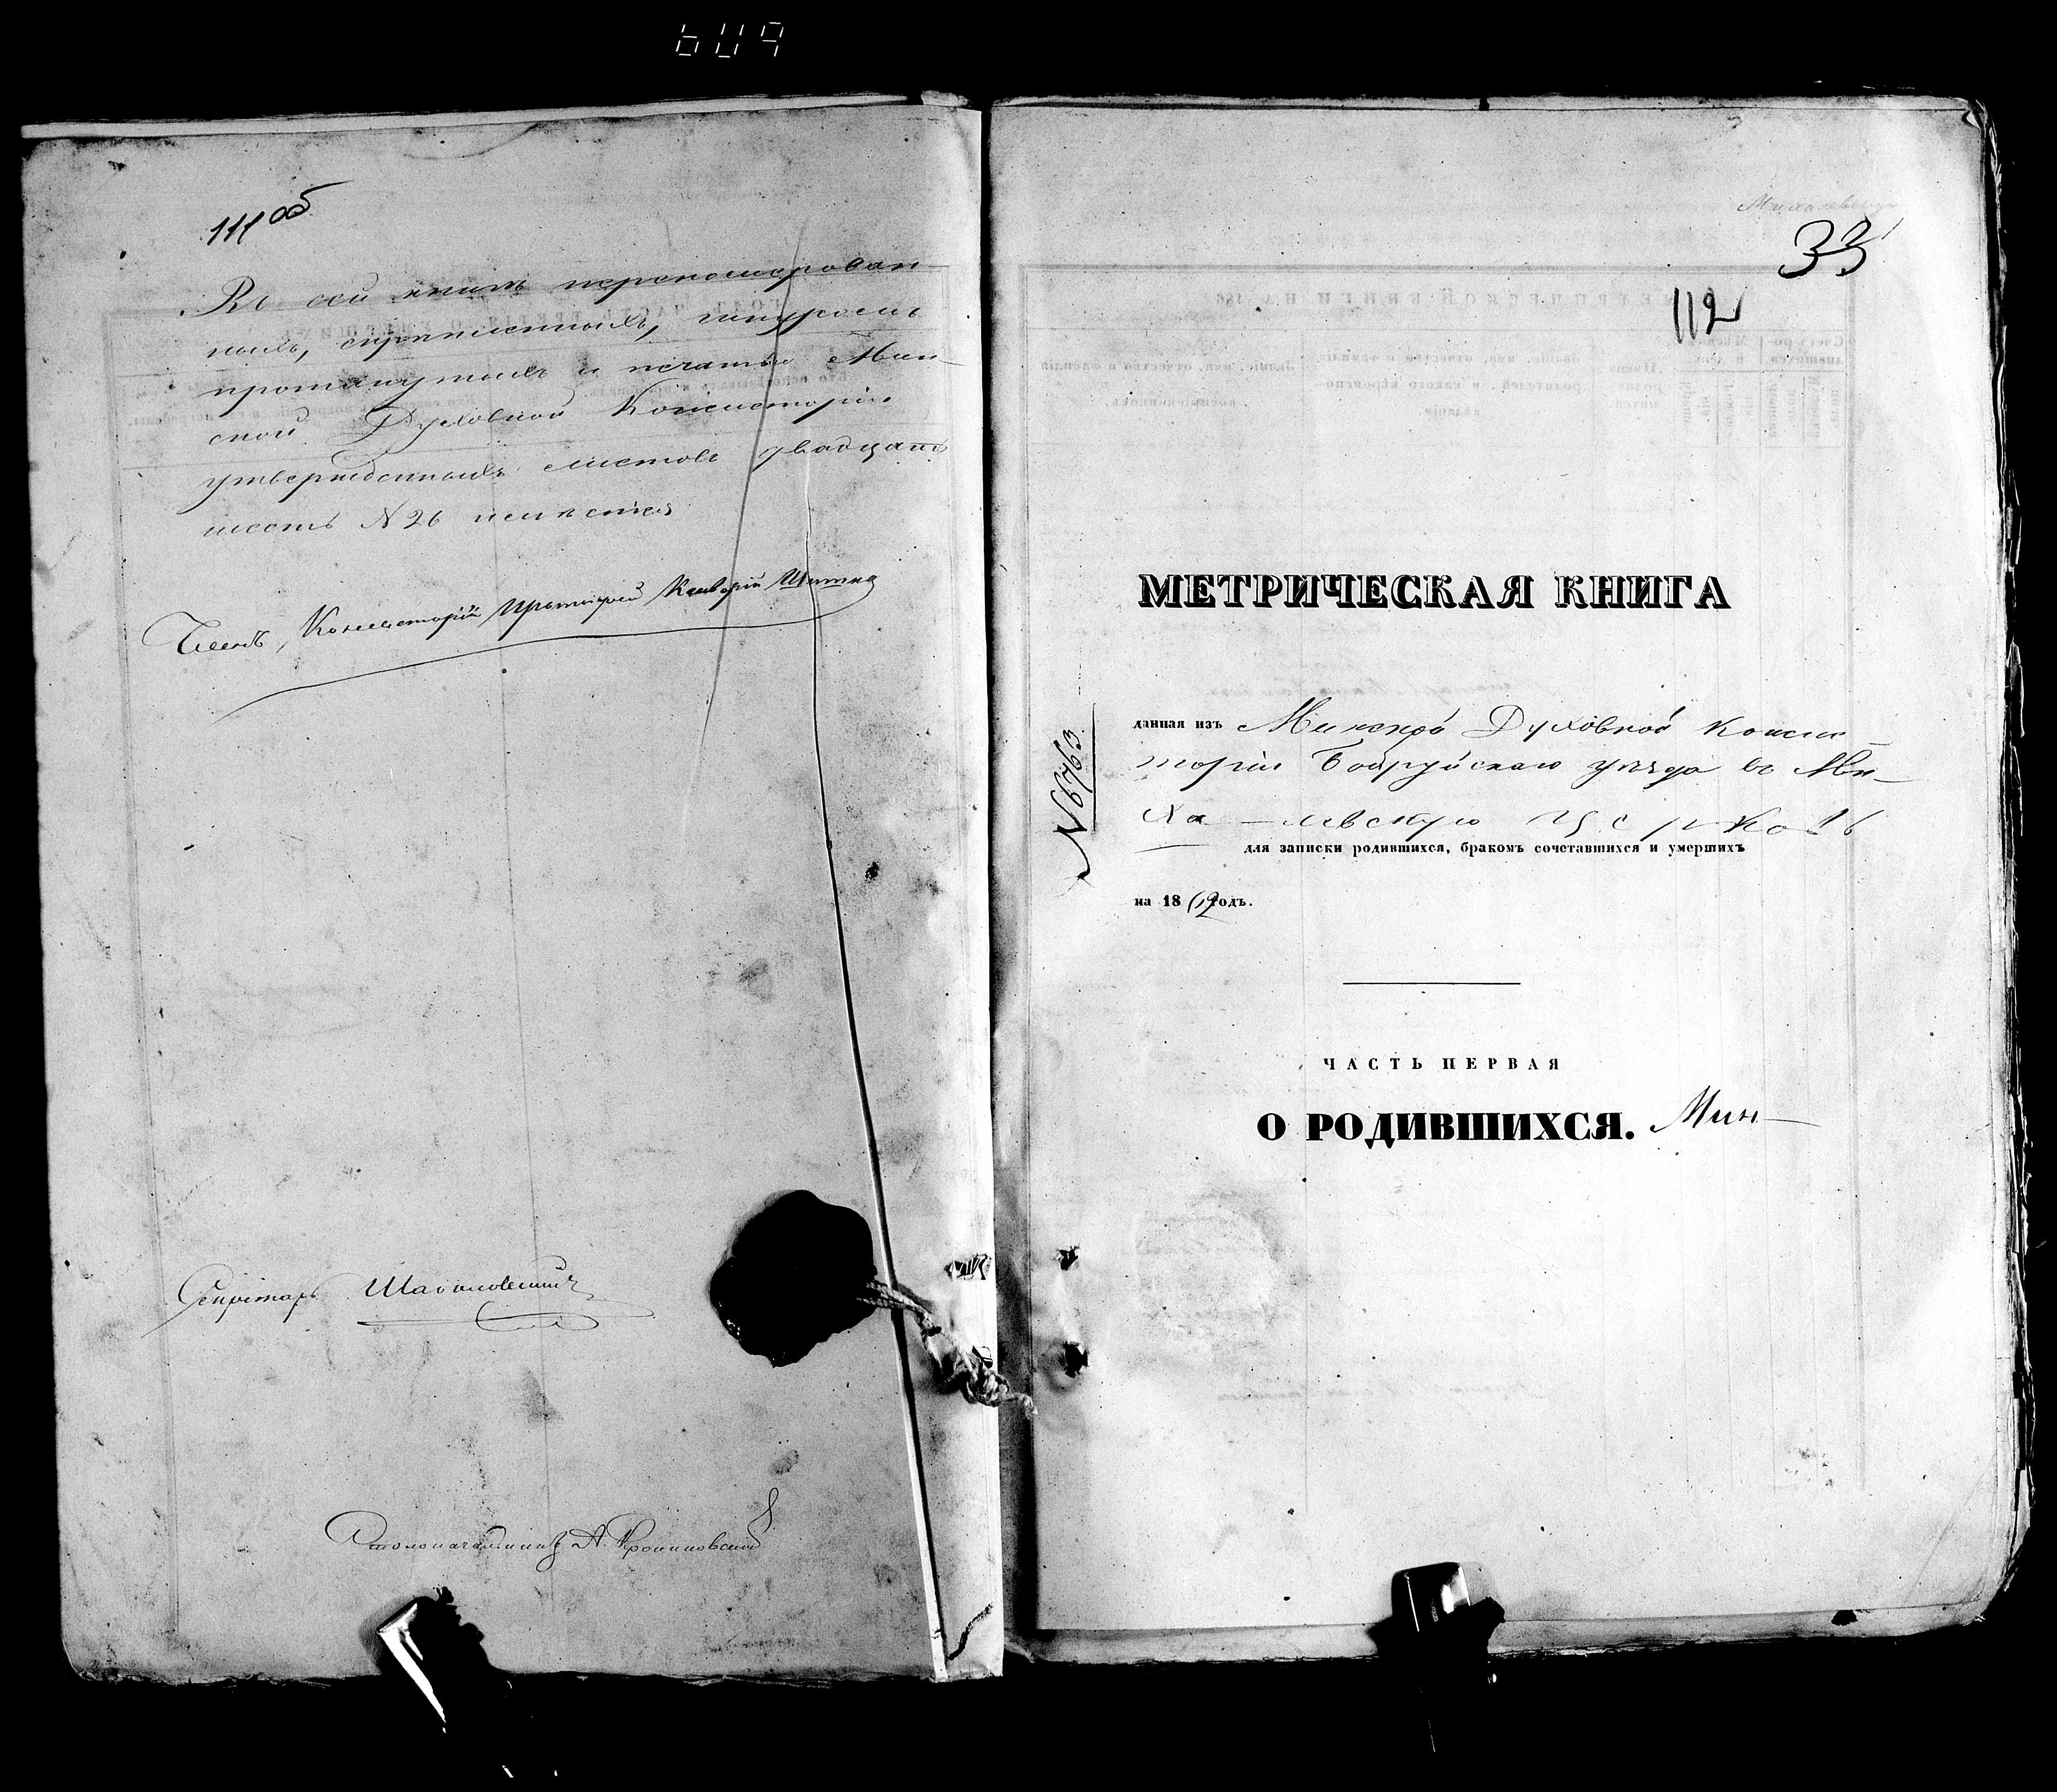 111 об
Въ сей книгѣ перенумерован-
ныхъ, скрѣпленныхъ, шнуромъ
протянутыхъ и печатью Мин-
ской Духовной Консисторіи
утвержденныхъ листовъ двадцать
шесть N 26 имѣется
Членъ, Консисторіи Протоіерей
Секретарь
Столоначальникъ А.
33
112
МЕТРИЧЕСКАЯ КНИГА
N 6763
данная изъ Минской Духовной Консис-
торіи Бобруйскаго уѣзда въ Ми-
ха-левскую церковь
для записки родившихся, бракомъ сочетавшихся и умершихъ
на 18 годъ.
ЧАСТЬ ПЕРВАЯ
О РОДИВШИХСЯ. Мин-